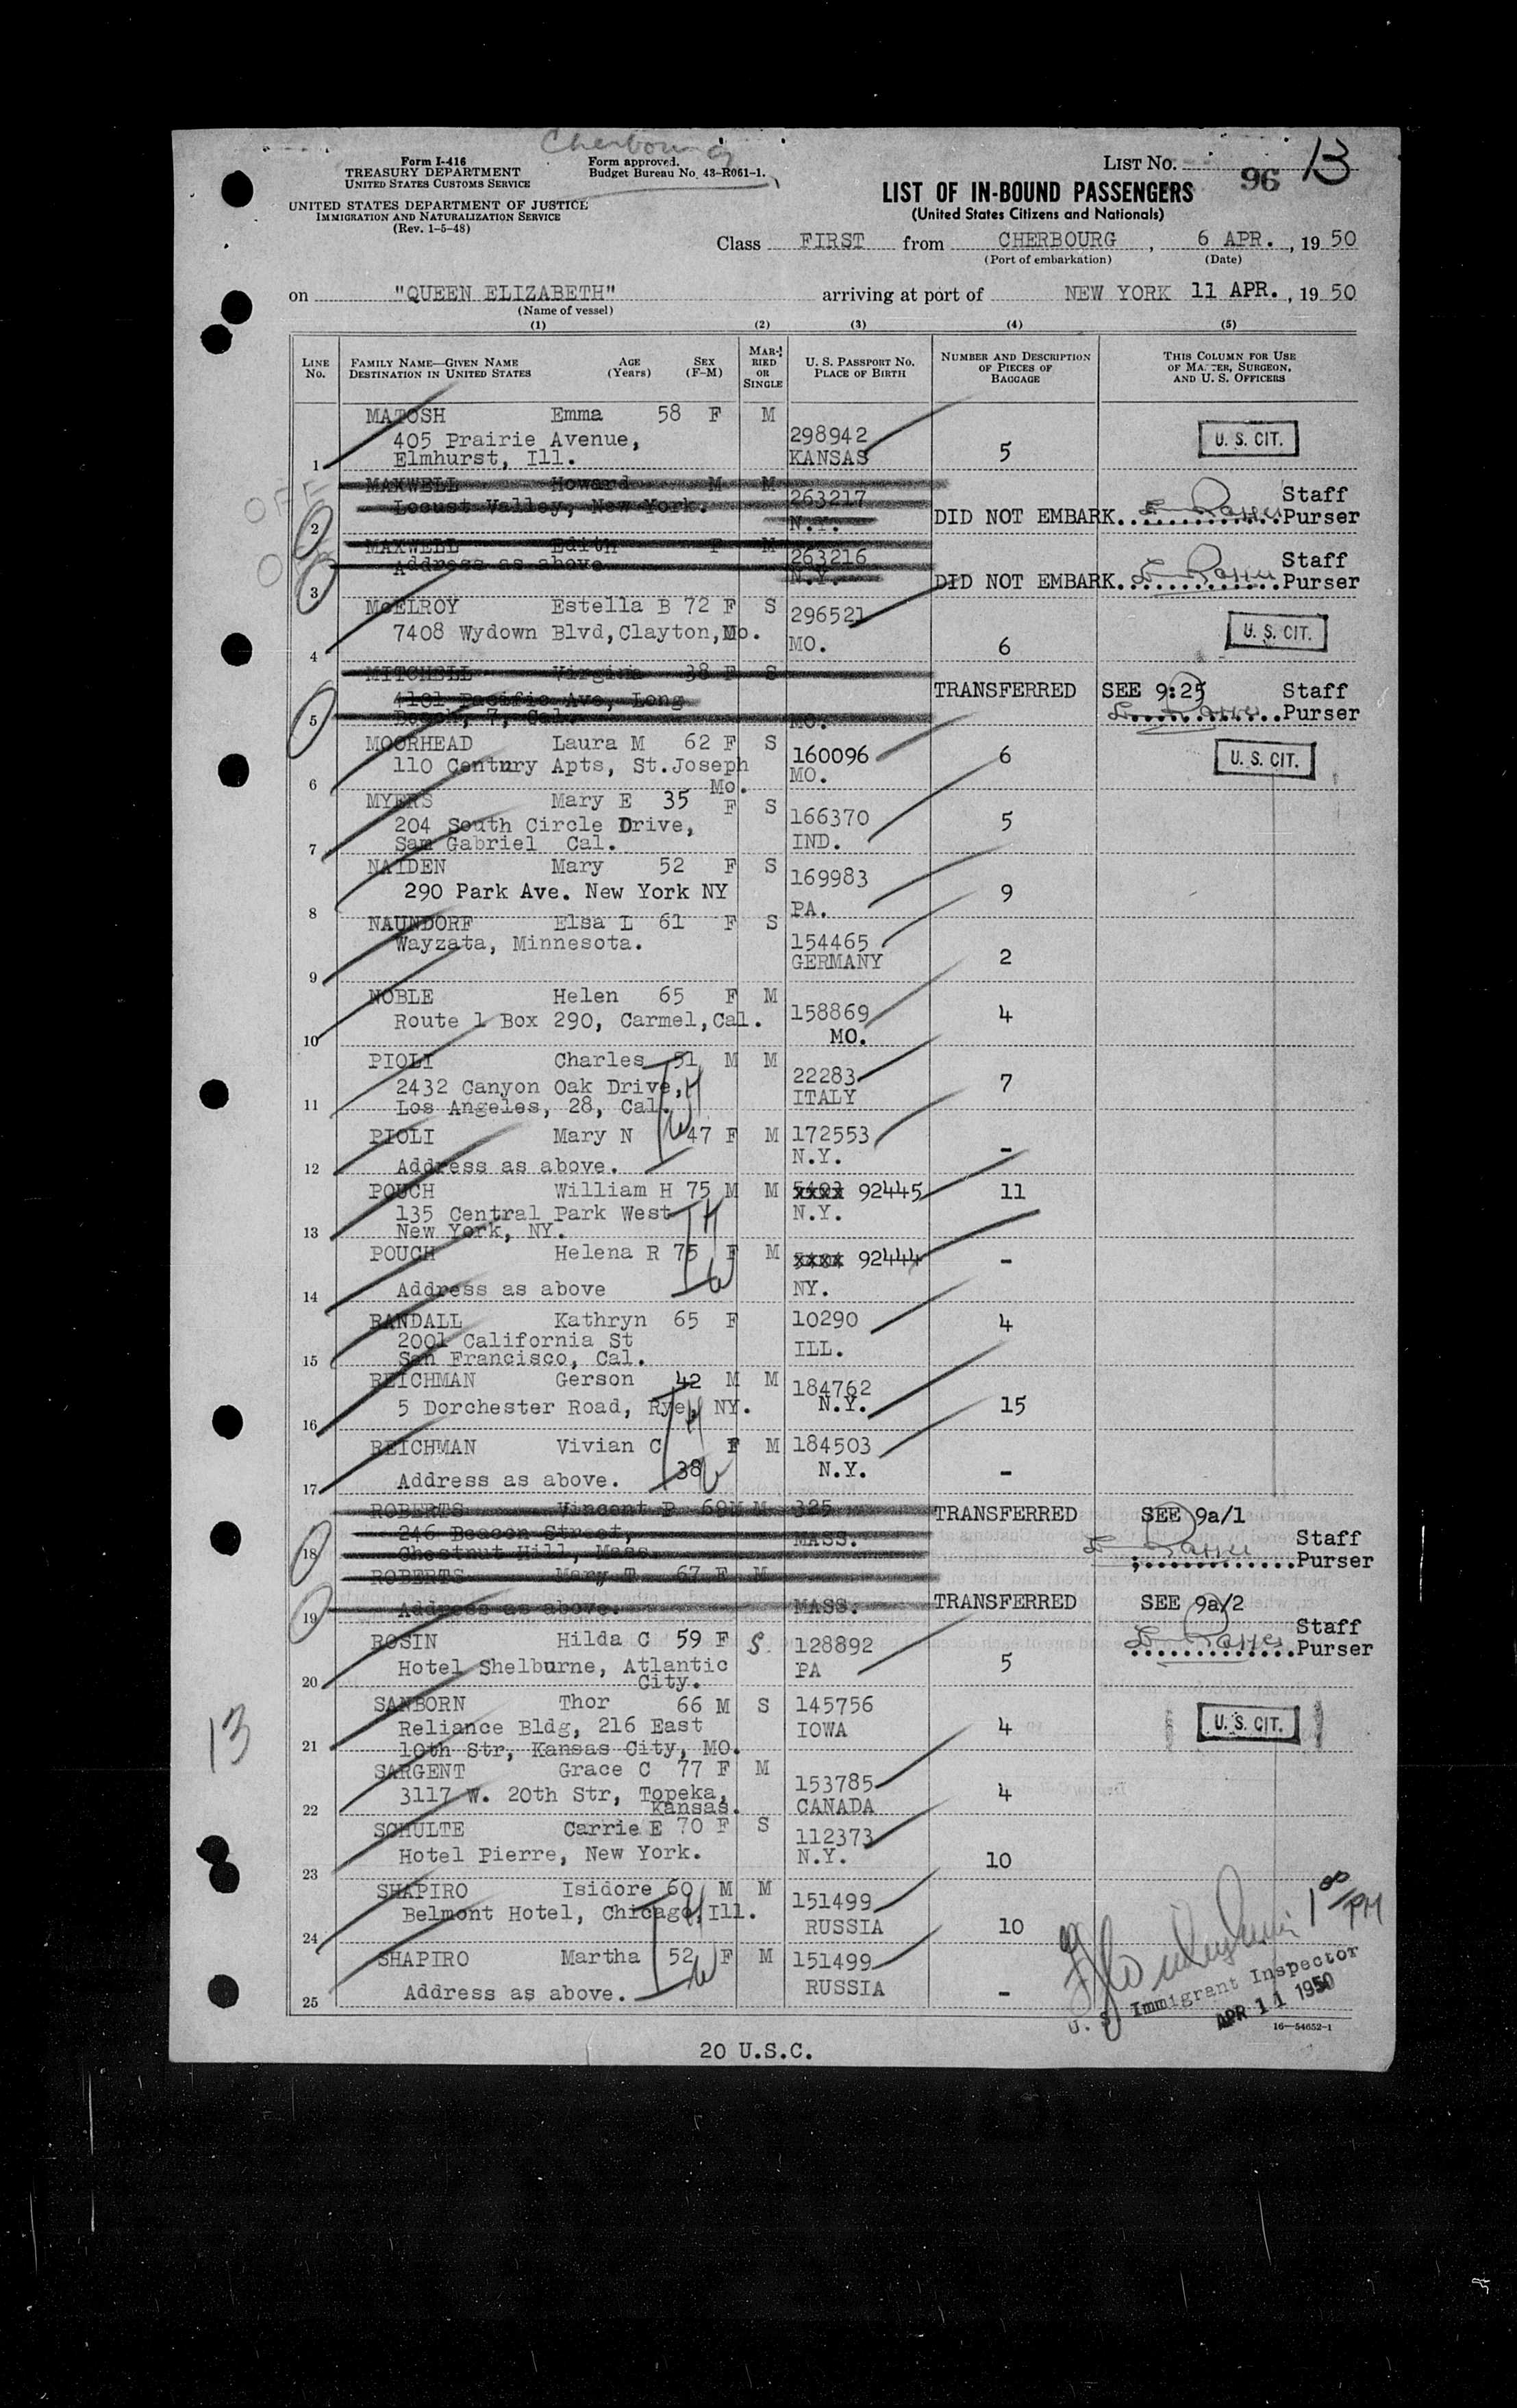 Cherbourg
Form I-416
TREASURY DEPARTMENT
UNITED STATES CUSTOMS SERVICE
Form approved.
Budget Bureau No. 43-R061-1.
LIST NO. 96 13
UNITED STATES DEPARTMENT OF JUSTICE
IMMIGRATION AND NATURALIZATION SERVICE
(Rev. 1-5-48)
LIST OF IN-BOUND PASSENGERS
(United States Citizens and Nationals)
Class FIRST from CHERBOURG, 6 APR., 1950
(Port of embarkation) (Date)
on "QUEEN ELIZABETH" arriving at port of NEW YORK 11 APR., 1950
(Name of vessel)
(1) (2) (3) (4) (5)
LINE NO. FAMILY NAME—GIVEN NAME DESTINATION IN UNITED STATES AGE (Years) SEX (F-M) MARRIED OR SINGLE U. S. PASSPORT NO. PLACE OF BIRTH NUMBER AND DESCRIPTION OF PIECES OF BAGGAGE THIS COLUMN FOR USE OF MASTER, SURGEON, AND U. S. OFFICERS
MATOSH Emma 58 F M U. S. CIT.
405 Prairie Avenue, 298942
1 Elmhurst, Ill. KANSAS 5
MAXWELL Howard M M Staff
Locust Valley, New York. 263217
2 N.Y. DID NOT EMBARK. Purser
MAXWELL Edith F M Staff
Address as above 263216
3 N.Y. DID NOT EMBARK. Purser
McELROY Estella B 72 F S 296521
7408 Wydown Blvd, Clayton, Mo. U. S. CIT.
4 MO. 6
MITCHELL Virginia 38 F S
4181 Pacific Ave, Long TRANSFERRED SEE 9:25 Staff
5 Beach, 7, Cal. MO. Purser
MOORHEAD Laura M 62 F S 160096 6 U. S. CIT.
110 Century Apts, St.Joseph MO.
6 Mo.
MYERS Mary E 35 F S 166370 5
204 South Circle Drive,
7 San Gabriel Cal. IND.
NAIDEN Mary 52 F S 169983
290 Park Ave. New York NY 9
8 PA.
NAUNDORF Elsa L 61 F S 154465
Wayzata, Minnesota. GERMANY 2
9
NOBLE Helen 65 F M 158869 4
Route 1 Box 290, Carmel, Cal.
10 MO.
PIOLI Charles 51 M M 22283 7
2432 Canyon Oak Drive,
11 Los Angeles, 28, Cal. ITALY
PIOLI Mary N 47 F M 172553 -
12 Address as above. N.Y.
POUCH William H 75 M M 92445 11
135 Central Park West N.Y.
13 New York, NY.
POUCH Helena R 75 F M 92444 -
14 Address as above NY.
RANDALL Kathryn 65 F 10290 4
2001 California St ILL.
15 San Francisco, Cal.
REICHMAN Gerson 42 M M 184762
5 Dorchester Road, Rye, NY. N.Y. 15
16
REICHMAN Vivian C F M 184503
17 Address as above. 38 N.Y. -
ROBERTS Vincent P 69 M M 325 TRANSFERRED SEE 9a/1
246 Beacon Street, MASS. Staff
18 Chestnut Hill, Mass. Purser
ROBERTS Mary T 67 F M
19 Address as above. MASS. TRANSFERRED SEE 9a/2
Staff
ROSIN Hilda C 59 F S. 128892 Purser
Hotel Shelburne, Atlantic PA 5
20 City.
SANBORN Thor 66 M S 145756
Reliance Bldg, 216 East IOWA 4 U. S. CIT.
21 10th Str, Kansas City, MO.
SARGENT Grace C 77 F M 153785
3117 W. 20th Str, Topeka, 4
22 Kansas. CANADA
SCHULTE Carrie E 70 F S 112373
Hotel Pierre, New York. N.Y. 10
23
SHAPIRO Isidore 60 M M 151499
Belmont Hotel, Chicago, Ill. RUSSIA 10
24
SHAPIRO Martha 52 F M 151499
25 Address as above. RUSSIA -
13
1 00/PM
U. S. Immigrant Inspector
APR 11 1950
16—54652-1
20 U.S.C.